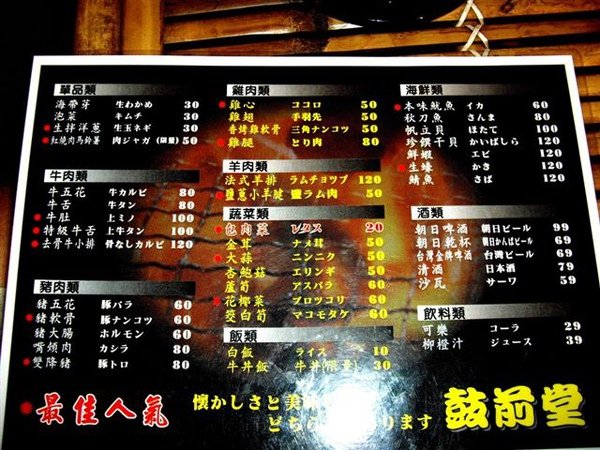 單品類
海帶芽 生わかめ 30
泡菜 キムチ 30
生拌洋蔥 生玉ネギ 30
紅燒肉馬鈴薯 肉ジャガ (限量) 50
牛肉類
牛五花 牛カルビ 80
牛舌 牛タン 80
牛肚 上ミノ 100
特級牛舌 上牛タン 100
去骨牛小排 骨なしカルビ 120
豬肉類
豬五花 豚バラ 60
豬軟骨 豚ナンコツ 60
豬大腸 ホルモン 60
嘴頰肉 カシラ 80
雙降豬 豚トロ 80
雞肉類
雞心 ココロ 50
雞翅 手羽先 50
香烤雞軟骨 三角ナンコツ 50
雞腿 とり肉 80
羊肉類
法式羊排 ラムチョップ 120
鹽蔥小羊腱 鹽ラム肉 50
蔬菜類
包肉菜 レタス 20
金茸 ナメ茸 50
大蒜 ニンニク 50
杏鮑菇 エリンギ 50
蘆筍 アスパラ 60
花椰菜 ブロッコリ 60
茭白筍 マコモタケ 60
飯類
白飯 ライス 10
牛丼飯 牛丼(限量) 30
海鮮類
本味魷魚 イカ 60
秋刀魚 さんま 60
帆立貝 ほたて 100
珍饌干貝 かいばしら 120
鮮蝦 エビ 120
生蠔 かき 120
鯖魚 さば 120
酒類
朝日啤酒 朝日ビール 99
朝日乾杯 朝日かんぱビール 69
台灣金牌啤酒 台灣ビール 69
清酒 日本酒 79
沙瓦 サーワ 59
飲料類
可樂 コーラ 29
柳橙汁 ジュース 39
最佳人氣
懷かしさと美
どち ります
鼓前堂